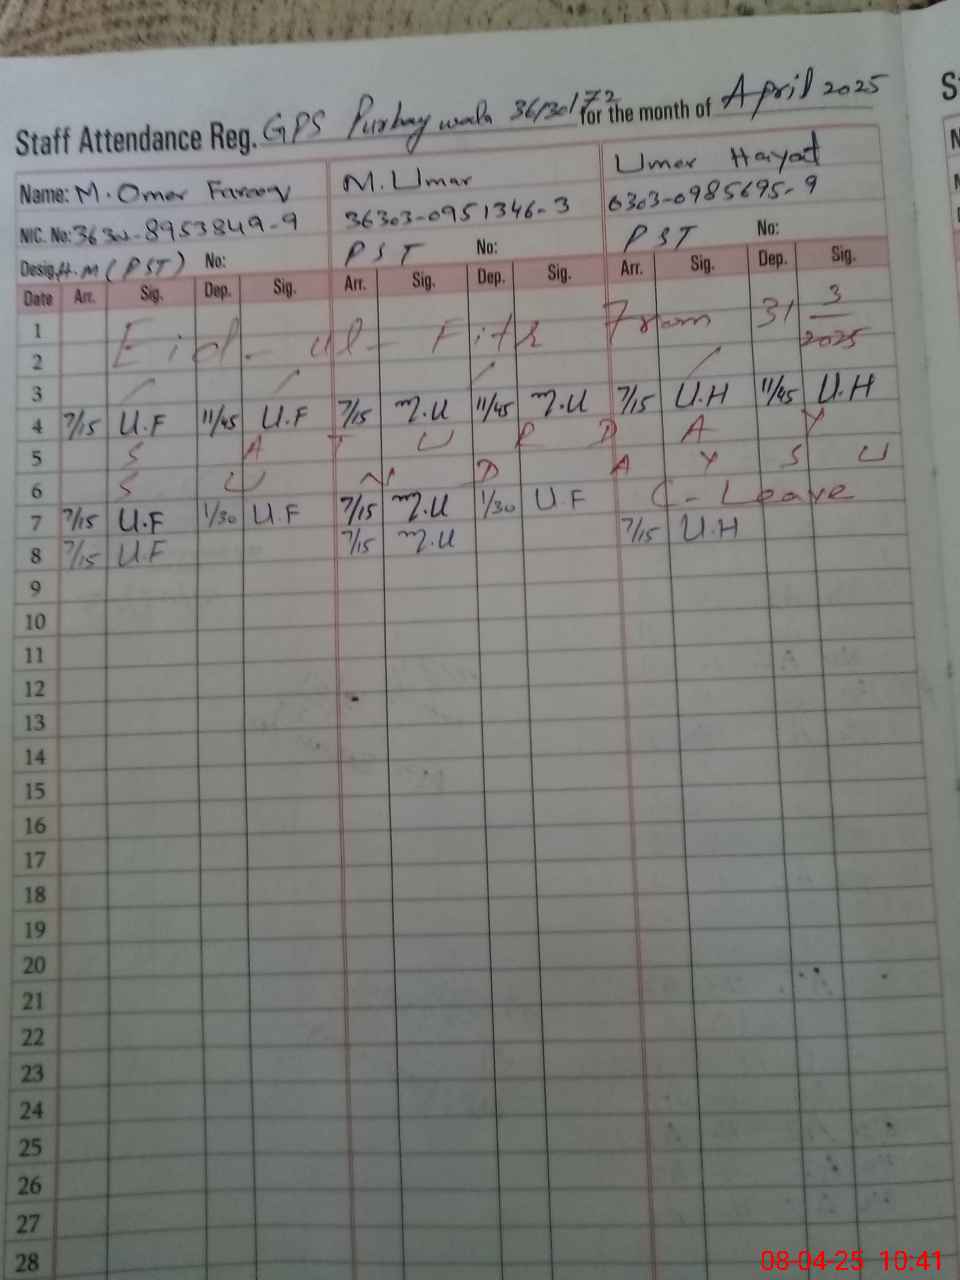 Staff Attendance Reg. GPS Purbay wala 36130172 for the month of April 2025
Name: M. Omer Farooq M. Umar Umer Hayat
NIC. No: 8953849-9 36303-0951346-3 6303-0985695-9
Desig. H.M (PST) No: PST No: PST No:
Date Arr. Sig. Dep. Sig. Arr. Sig. Dep. Sig. Arr. Sig. Dep. Sig.
1 Eid-ul-Fitr From 31 3 2025
2
3
4 7/15 U.F 11/45 U.F 7/15 M.U 11/45 M.U 7/15 U.H 11/45 U.H
5 S A T U R D A Y
6 S U N D A Y S U
7 7/15 U.F 1/30 U.F 7/15 M.U 1/30 U.F C-Leave
8 7/15 U.F 7/15 M.U 7/15 U.H
9
10
11
12
13
14
15
16
17
18
19
20
21
22
23
24
25
26
27
28
08-04-25 10:41